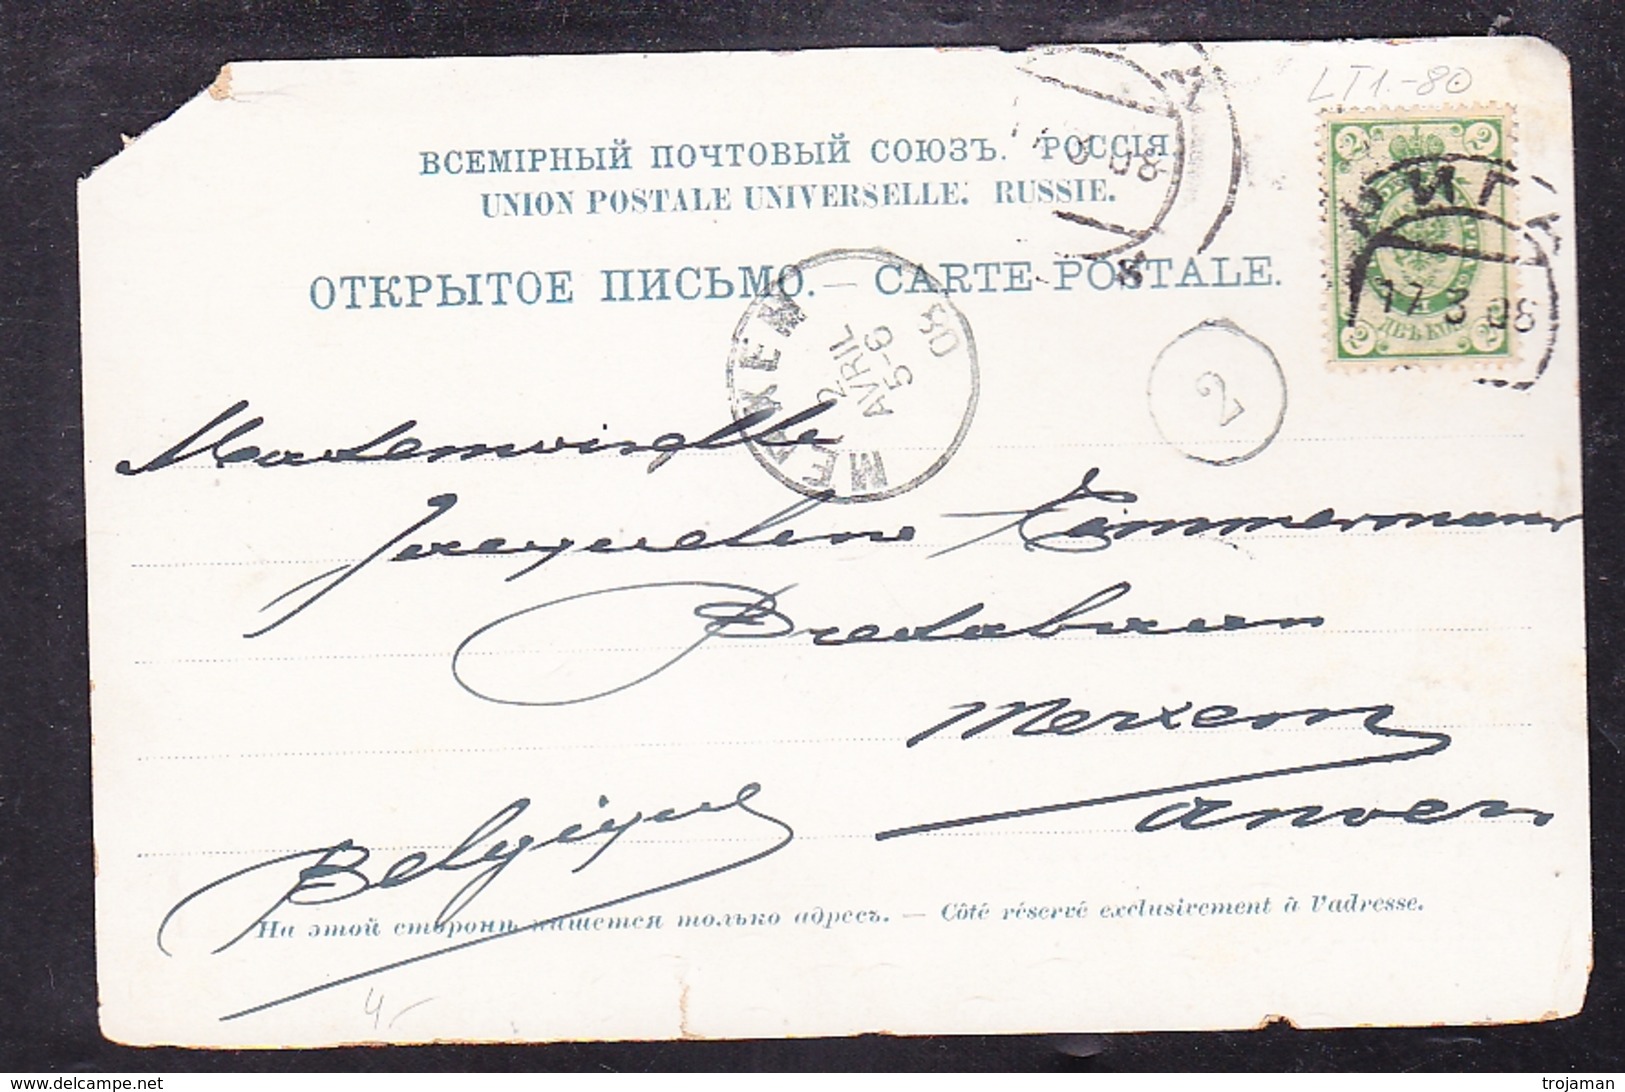 LT1.-80
ВСЕМІРНЫЙ ПОЧТОВЫЙ СОЮЗЪ. РОССІЯ.
UNION POSTALE UNIVERSELLE. RUSSIE.
ОТКРЫТОЕ ПИСЬМО. — CARTE POSTALE.
2 2
РИГА
17 3 08
ДВѢ КОП.
2 2
MERXEM
2
AVRIL
5-6
08
2
Mademoiselle
Jacqueline Zimmermann
Bredabaan
Merxem
Anvers
Belgique
На этой сторонѣ пишется только адресъ. — Côté réservé exclusivement à l'adresse.
4-
trojaman